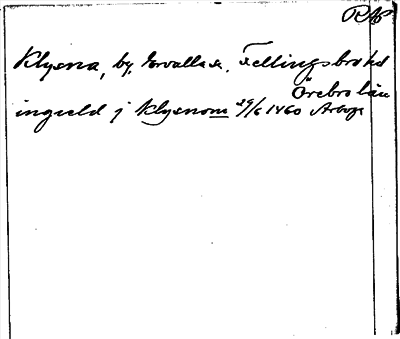 RAP
Klysna, by, Ervalla sn. Fellingsbro hd
Örebro län
ingield j klysnom 29/6 1460 Arboga